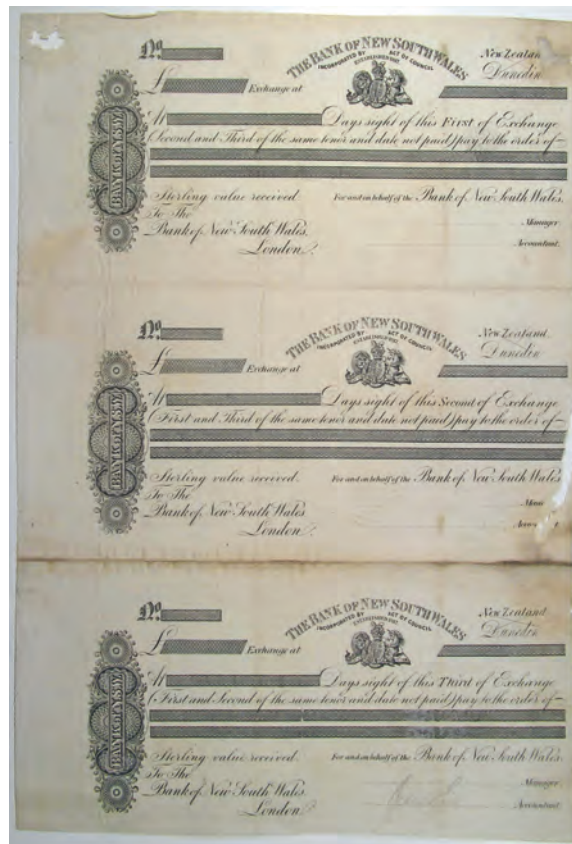 No
THE BANK OF NEW SOUTH WALES
INCORPORATED BY ACT OF COUNCIL
New Zealan
Dunedin
£ Exchange at
At Days sight of this First of Exchange
(Second and Third of the same tenor and date not paid) pay to the order of
BANK OF N.S.W.
Sterling value received
For and on behalf of the Bank of New South Wales.
To The
Bank of New South Wales.
Manager.
London.
Accountant.
No
THE BANK OF NEW SOUTH WALES
INCORPORATED BY ACT OF COUNCIL
New Zealand
Dunedin
£ Exchange at
At Days sight of this Second of Exchange
(First and Third of the same tenor and date not paid) pay to the order of
BANK OF N.S.W.
Sterling value received
For and on behalf of the Bank of New South Wales
To The
Bank of New South Wales.
London.
No
THE BANK OF NEW SOUTH WALES
INCORPORATED BY ACT OF COUNCIL
New Zealand
Dunedin
£ Exchange at
At Days sight of this Third of Exchange
(First and Second of the same tenor and date not paid) pay to the order of
BANK OF N.S.W.
Sterling value received
For and on behalf of the Bank of New South Wales.
To The
Bank of New South Wales.
Manager.
London.
Accountant.